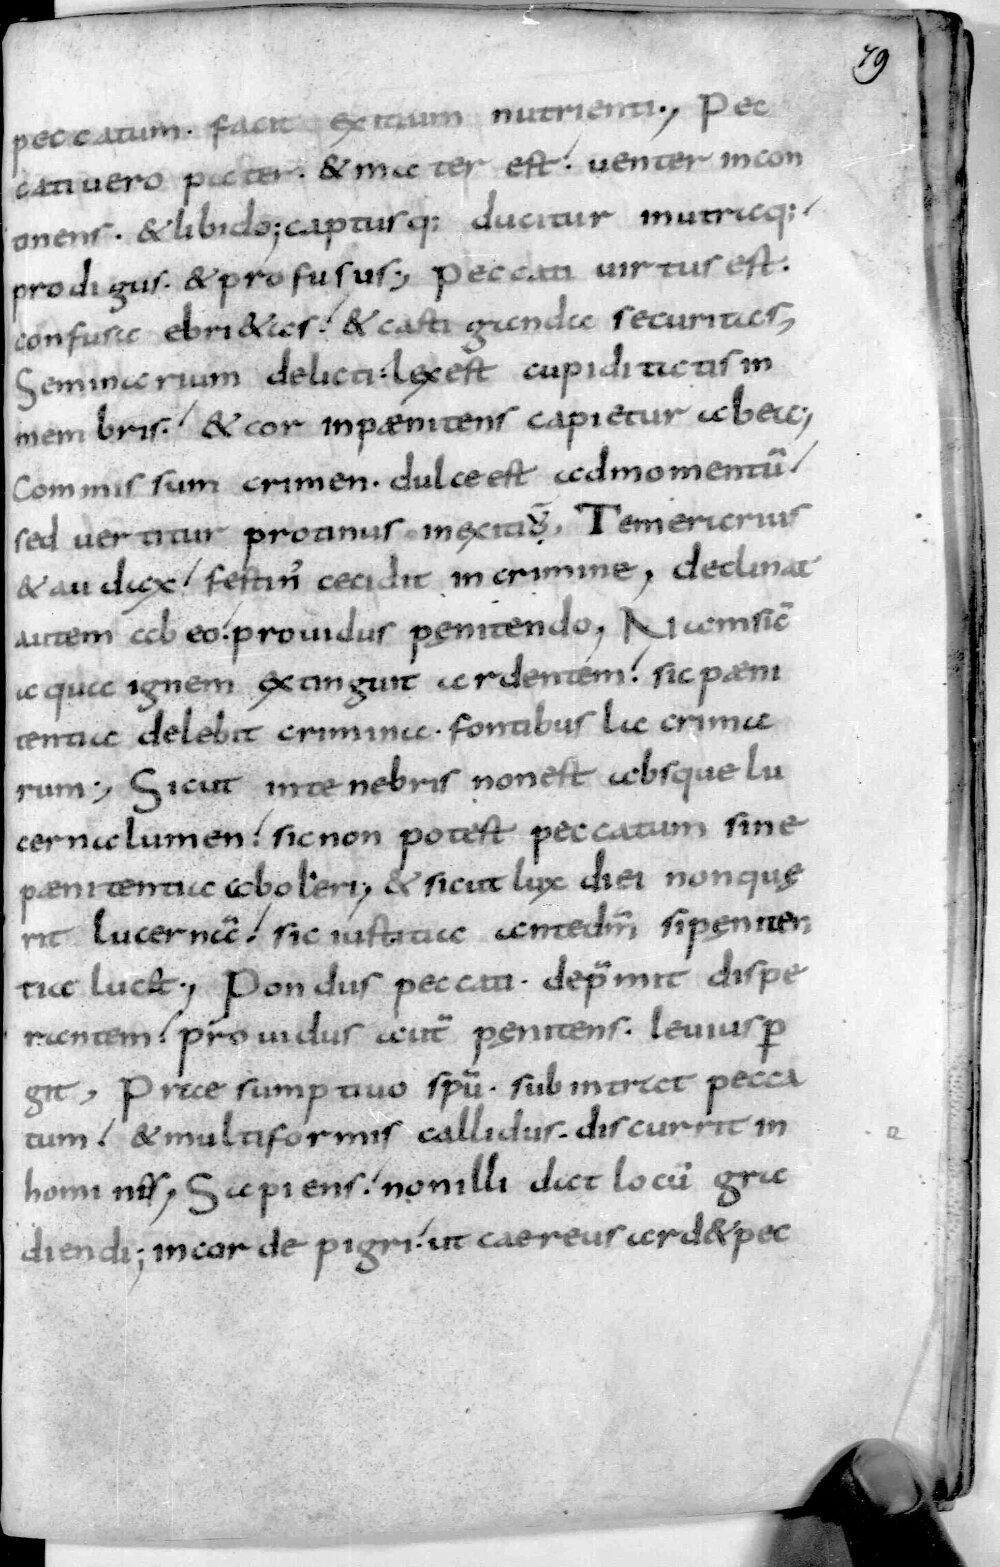 79
peccatum. facit exitium nutrienti., Pec
cati vero pater. & mater est. venter incon
tinens. & libido; captusq: ducitur inutriaq:
prodigus. & profusus., Peccati uirtus est.
confusa ebri&as. & casti gianda securitas,
Seminarium delicti. lex est cupiditatis in
membris. & cor inpænitens capietur ab ea;,
Commissum crimen. dulce est ad momentū
sed vertitur protinus in exitiū, Temerarius
& audax festin̄ cecidit in crimine, declinat
autem ab eo. prouidus penitendo, Nam sic̄
aqua ignem extinguit ardentem. sic pæni
tentia delebit crimina. fontibus lacrima
rum;, Sicut in tenebris non est absque lu
cerna lumen. sic non potest peccatum sine
pænitentia aboleri;, & sicut lux diei non quę
rit lucernā. sic iustitia ante dm̄ si pęniten
tia luc&.;, Pondus peccati. dep̄mit dispe
rantem. prouidus aut̄ pęnitens. leuius ꝑ
git, Praesumptiuo spū. subintrat pecca
tum. & multiformis callidus. discurrit in
hominis, Sapiens. non illi dat locū gra
diendi; in corde pigri. ut caereus ard& pec